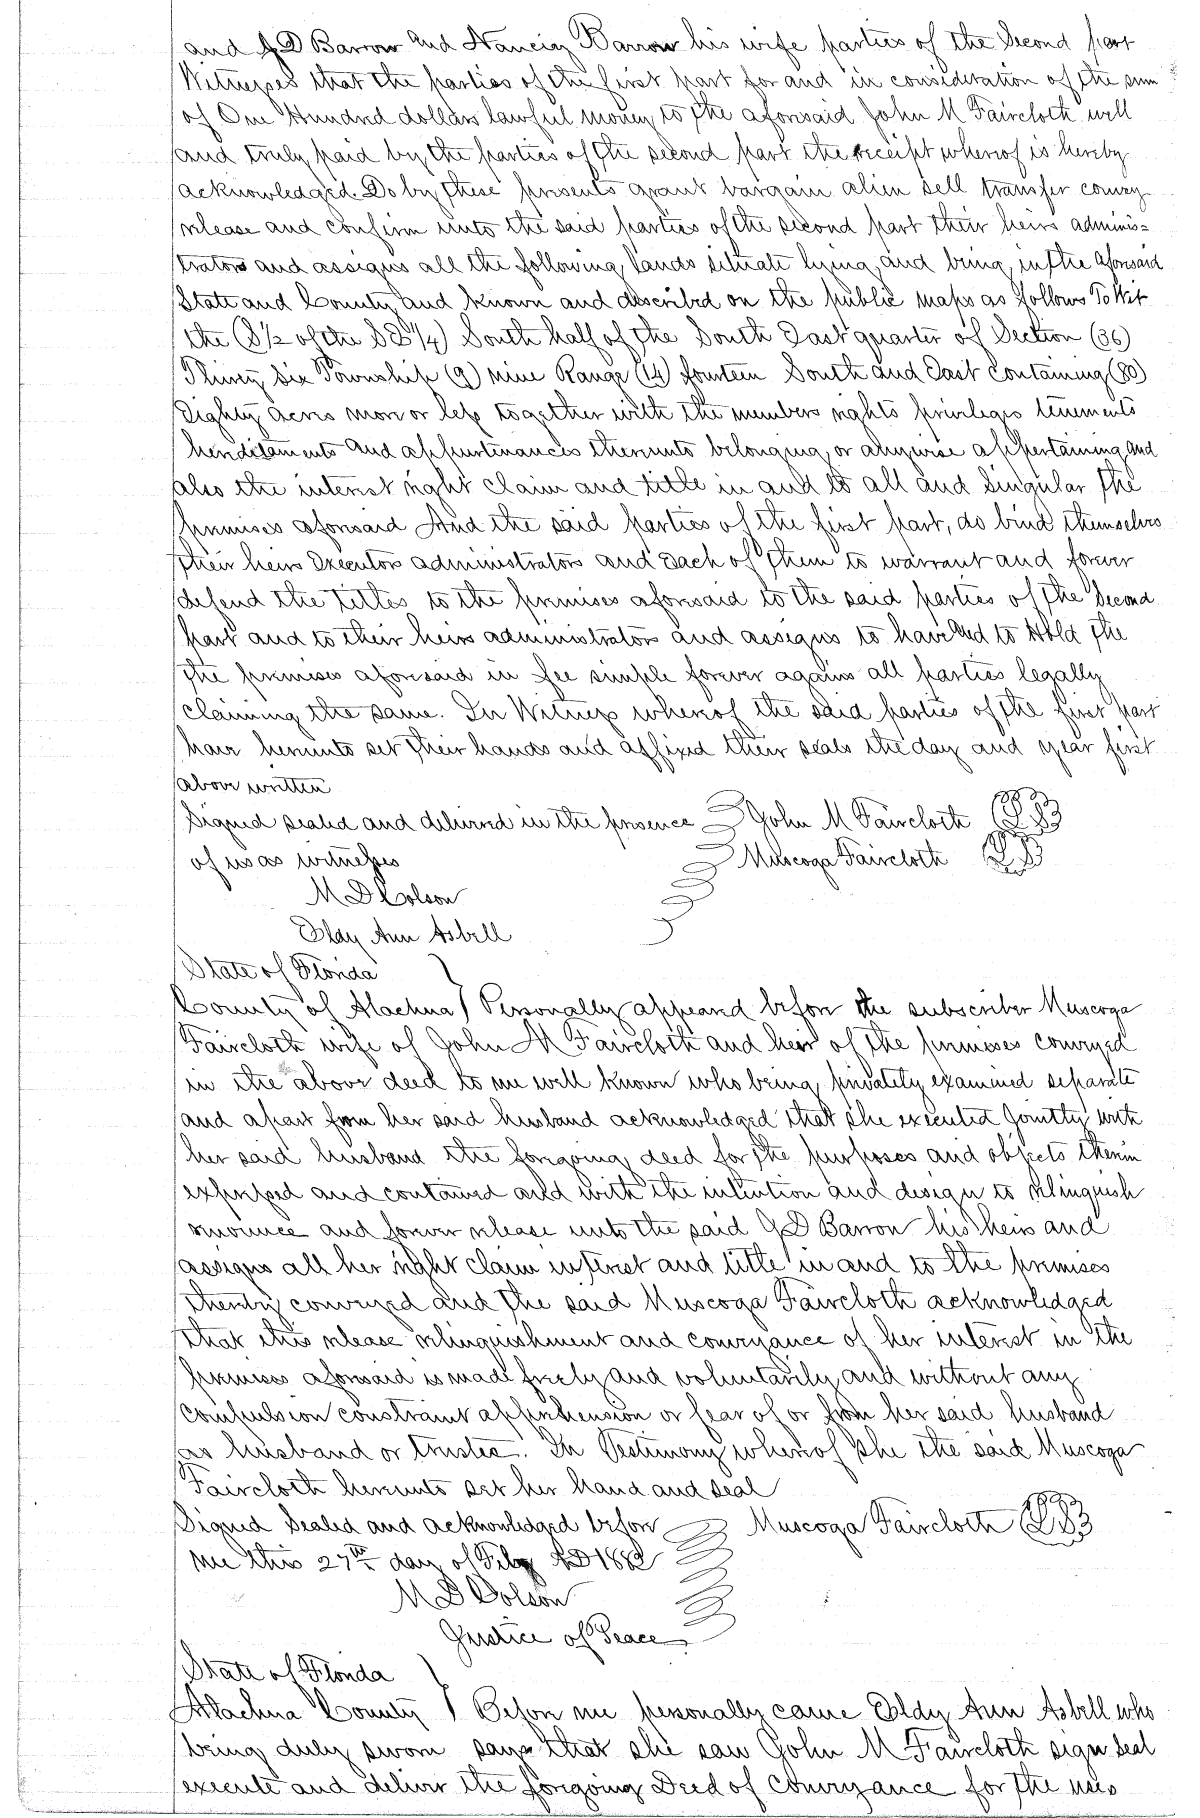 and J D Barrow and Nanciy Barrow his wife parties of the Second part
Witnesses that the parties of the first part for and in consideration of the sum
of One Hundred dollars lawful money to the aforesaid John M Faircloth well
and truly paid by the parties of the second part the receipt whereof is hereby
acknowledged. Do by these presents grant bargain alien sell transfer convey
release and confirm unto the said parties of the second part their heirs adminis=
trators and assigns all the following lands situate lying and being in the aforesaid
State and County and known and described on the public maps as follows To Wit
the (S½ of the SE¼) South half of the South East quarter of Section (36)
Thirty six Township (9) nine Range (14) fourteen South and East Containing (80)
Eighty acres more or less together with the members rights privileges tenements
hereditaments and appurtenances thereunto belonging or anywise appertaining and
also the interest right claim and title in and to all and Singular the
premises aforesaid And the said parties of the first part, do bind themselves
their heirs Executors administrators and Each of them to warrant and forever
defend the titles to the premises aforesaid to the said parties of the Second
part and to their heirs administrators and assigns to have and to Hold the
the premises aforesaid in fee simple forever agains all parties legally
claiming the same. In Witness whereof the said parties of the first part
have hereunto set their hands and affixed their seals the day and year first
above written
Signed sealed and delivered in the presence John M Faircloth LS
of us as witnesses Muscoga Faircloth LS
M D Colson
Eldy Ann Asbell
State of Florida
County of Alachua Personally appeared before the subscriber Muscoga
Faircloth wife of John M Faircloth and heir of the premises conveyed
in the above deed to me well known who being privately examined separate
and apart from her said husband acknowledged that she executed Jointly with
her said husband the foregoing deed for the purposes and objects therein
expressed and contained and with the intention and design to relinquish
renounce and forever release unto the said J D Barron his heirs and
assigns all her right claim interest and title in and to the premises
thereby conveyed and the said Muscoga Faircloth acknowledged
that this release relinquishment and conveyance of her interest in the
premises aforesaid is made freely and voluntarily and without any
compulsion constraint apprehension or fear of or from her said husband
as husband or trustee. In Testimony whereof she the said Muscoga
Faircloth hereunto set her hand and seal
Signed Sealed and acknowledged before Muscoga Faircloth LS
me this 27th day of Feby AD 1882
M D Colson
Justice of Peace
State of Florida
Alachua County Before me personally came Eldy Ann Asbell who
being duly sworn says that she saw John M Faircloth sign seal
execute and deliver the foregoing Deed of Conveyance for the uses